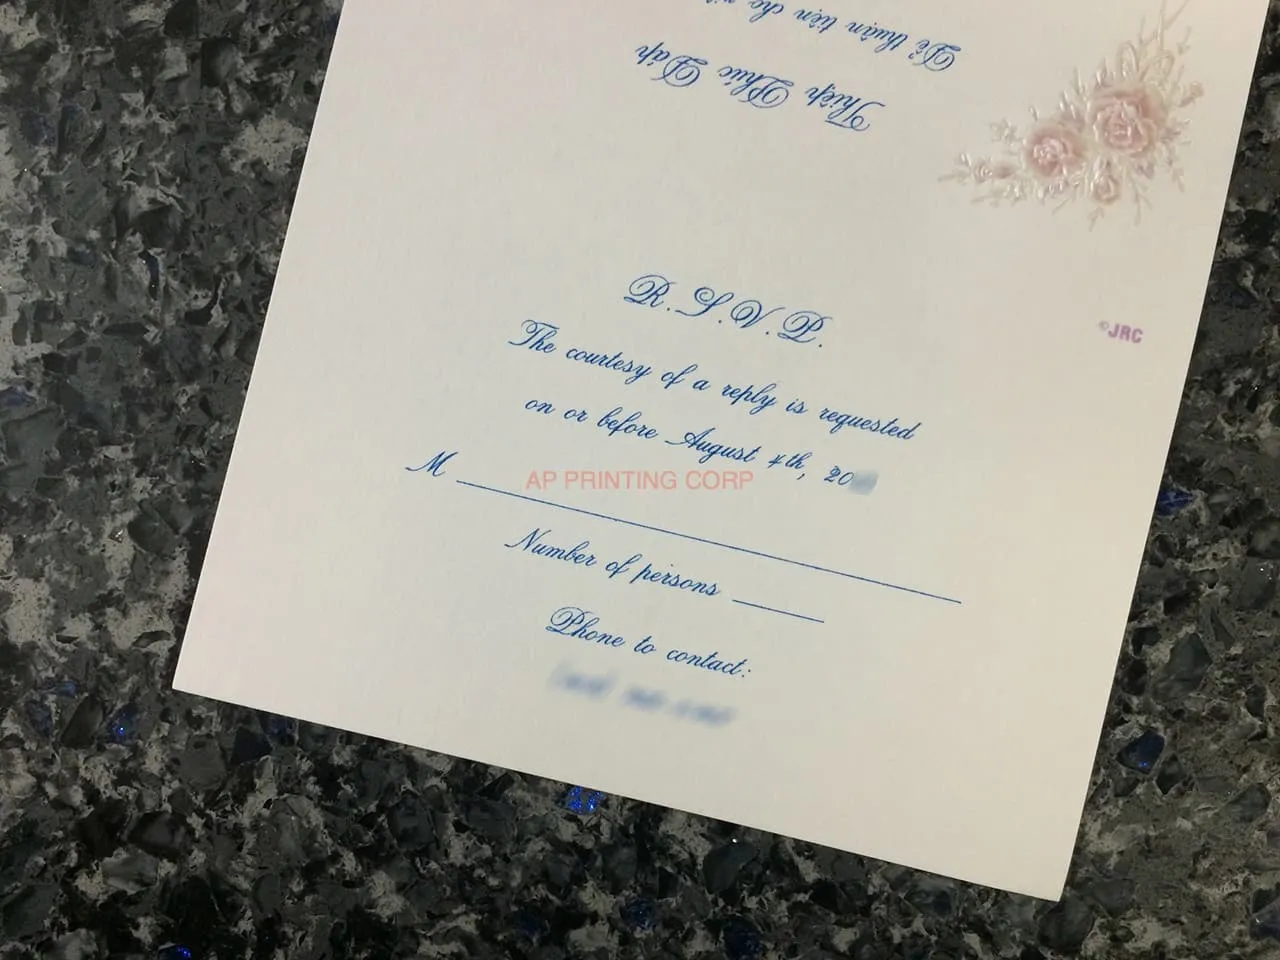 Để thuận tiện cho
Thiệp Phúc Đáp
R.S.V.P.
©JRC
The courtesy of a reply is requested
on or before August 4th, 20
M
AP PRINTING CORP
Number of persons
Phone to contact: